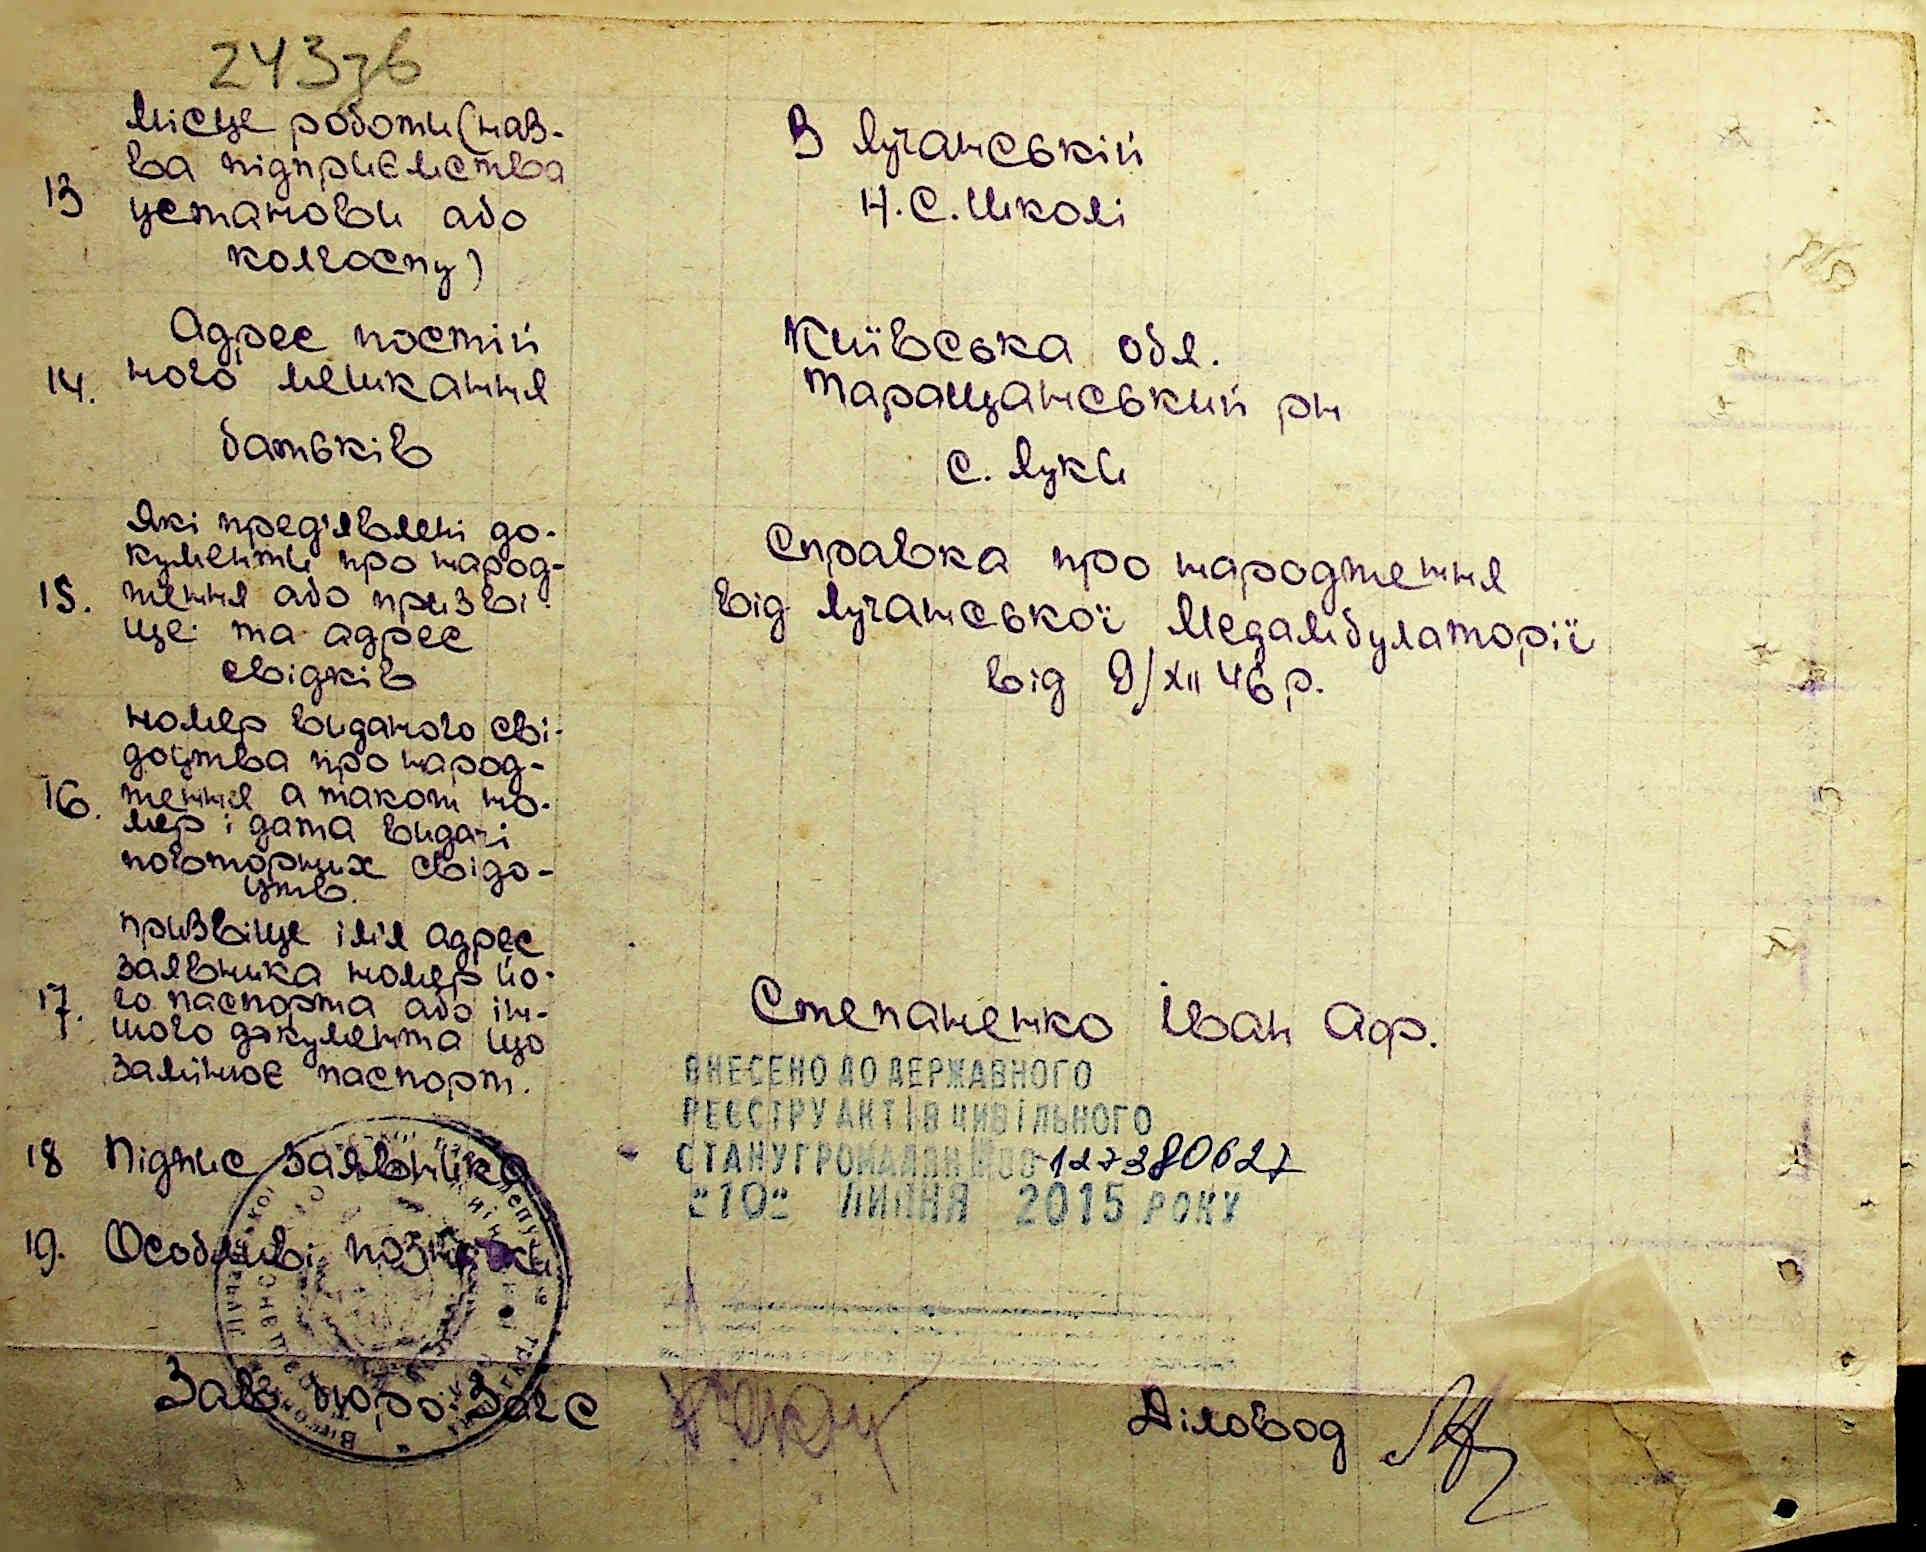 243зв
13
Місце роботи (наз-
ва підприємства
установи або
колгоспу)
В Лучанській
Н.С. Школі
14.
Адрес постій
ного мешкання
батьків
Київська обл.
Таращанський рн
с. Луки
15.
Які предʼявлені до-
кументи про народ-
ження або призві-
ще та адрес
свідків
Справка про народження
від Лучанської Медамбулаторії
від 9/XII 46 р.
16.
номер виданого сві-
доцтва про народ-
ження а також но-
мер і дата видачі
повторних свідо-
цтв.
17.
призвіще імʼя адрес
заявника номер йо-
го паспорта або ін-
шого документа що
замінює паспорт.
Степаненко Іван Адр.
ВНЕСЕНО ДО ДЕРЖАВНОГО
РЕЄСТРУ АКТІВ ЦИВІЛЬНОГО
СТАНУ ГРОМАДЯН № 00127380627
"10" ЛИПНЯ 2015 РОКУ
18 Підпис заявника
19. Особливі позначки
Зав бюро Загс
Діловод